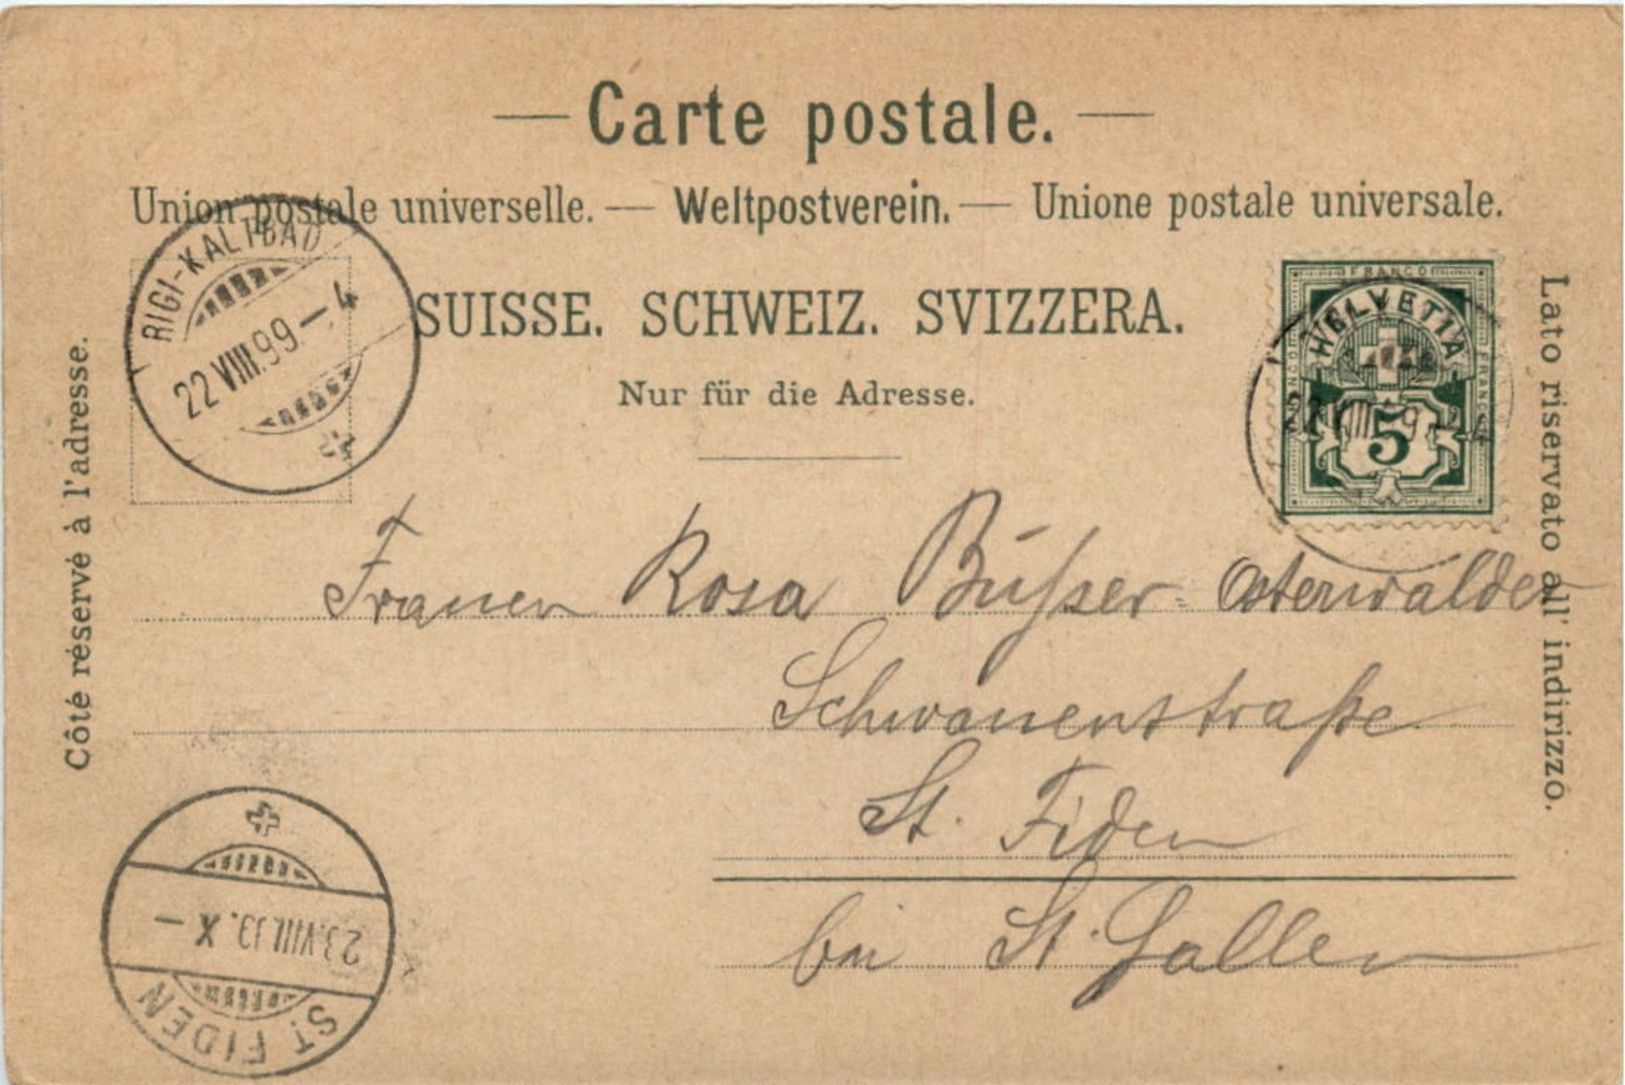 — Carte postale. —
Union postale universelle. — Weltpostverein. — Unione postale universale.
SUISSE. SCHWEIZ. SVIZZERA.
Nur für die Adresse.
Côté réservé à l'adresse.
Lato riservato all' indirizzo.
RIGI-KALTBAD
22 VIII.99 – 4
FRANCO
HELVETIA
FRANCO
FRANCO
5
Frauen Rosa Büßer-Osterwalder
Schwanenstraße
St. Fiden
bei St. Gallen
23.VIII. X –
ST. FIDEN